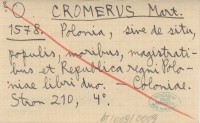 CROMERUS Mart.
1578. Polonia, sive de situ,
populis, moribus, magistrati-
bus et Republica regni Polo-
niae libri duo. — Coloniae.
Stron 210, 4°.